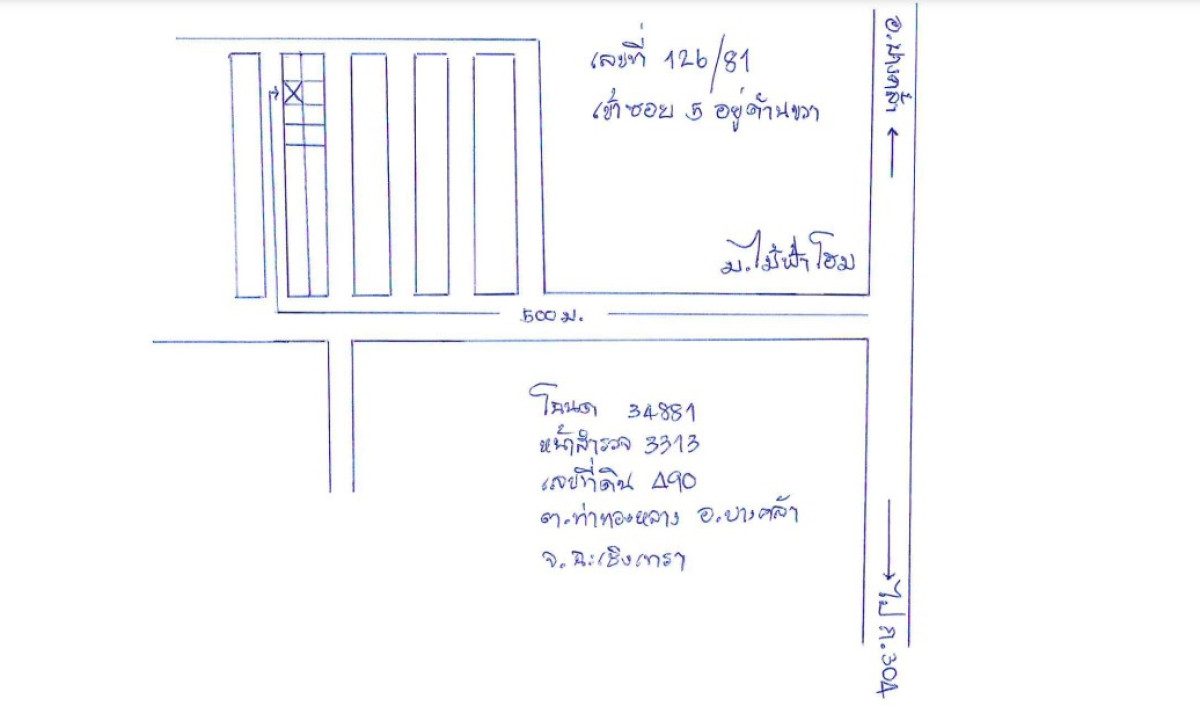 เลขที่ 126/81
เข้าซอย 5 อยู่ด้านขวา
อ.บางคล้า
ม.ไม้ฟ้าโฮม
500 ม.
โฉนด 34881
หน้าสำรวจ 3313
เลขที่ดิน 490
ต.ท่าทองหลาง อ.บางคล้า
จ.ฉะเชิงเทรา
ไป ถ.304